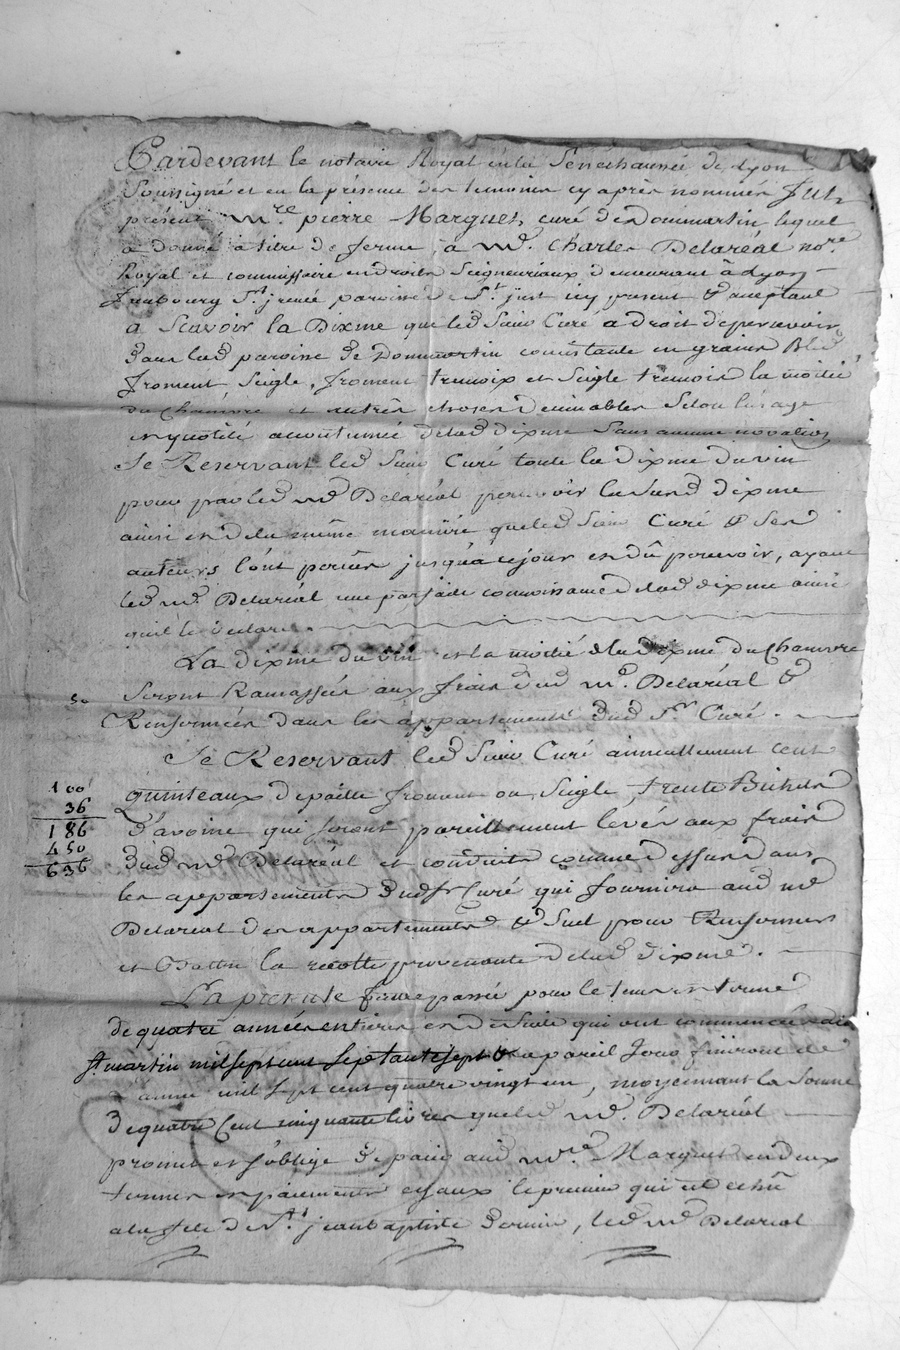 Pardevant le notaire Royal en la Senechaussée de Lyon
Soussigné et en la présence des temoins cy après nommés fut
présent mre pierre Marguet, curé de Dommartin lequel
a donné a titre de ferme, a me. Charles Delaréal nore
Royal et commissaire en droits Seigneuriaux demeurant à Lyon
faubourg St jrenée paroisse de St just icy present & acceptant
a Scavoir la Dixme que led Sieur Curé a droit de percevoir
dans lad paroisse de Dommartin consistante en grains Bled
froment Seigle, froment tremoix et Seigle tremois la moitié
du Chanvre et autres choses decimables Selon l'usage
et quotité accoutumée de lad dixme Sans aucune novation
Se Reservant led Sieur Curé toute la dixme du vin
pour par led me Delaréal percevoir la Susd dixme
ainsi et de la même manière que led Sieur Curé & Ses
auteurs l'ont perçue jusqu'a ce jour et dû percevoir, ayant
led me. Delaréal une parfaite connoissance de lad dixme ainsi
qu'il le declare
La dixme du vin et la moitié de la dixme du Chanvre
Seront Ramassées aux frais dud me. Delaréal &
Renfermées dans les appartements dud Sr Curé.
50
Se Reservant led Sieur Curé annuellement cent
quinteaux de paille froment ou Seigle, trente Bichets
d'avoine qui seront pareillement levés aux frais
dud me Delaréal et conduits comme dessus dans
les appartements dud Sr Curé qui fournira aud me
Delaréal des appartements & Suel pour Renfermer
et Battre la recolte provenante de lad dixme.
100
36
186
450
636
La presente ferme passée pour le tems et terme
de quatre années entières et de Suite qui ont commencé a la
St martin mil sept cent Septante sept & a pareil jour finiront de
l'année mil sept cent quatre vingt un, moyennant la Somme
de quatre Cent cinquante livres que led me. Delaréal
promet et s'oblige de paier aud mre Marguet en deux
termes et paiements egaux le premier qui est echû
a la fete de St jean baptiste dernier, led me Delaréal